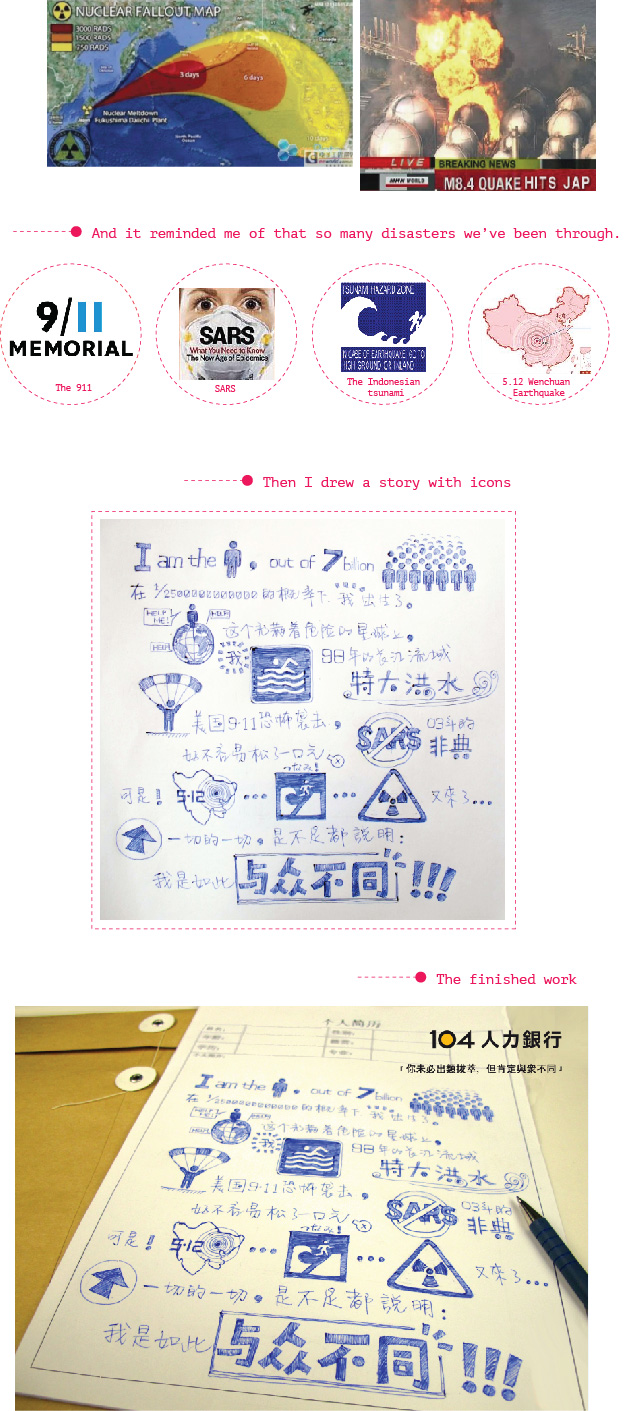 NUCLEAR FALLOUT MAP
3000 RADS
1500 RADS
750 RADS
3 days
6 days
10 days
Nuclear Meltdown
Fukushima Daiichi Plant
North Pacific
Ocean
LIVE BREAKING NEWS
NHK WORLD M8.4 QUAKE HITS JAP
And it reminded me of that so many disasters we've been through.
9/11
MEMORIAL
The 911
SARS
What You Need to Know
The New Age of Epidemics
SARS
TSUNAMI HAZARD ZONE
IN CASE OF EARTHQUAKE, GO TO
HIGH GROUND OR INLAND
The Indonesian
tsunami
5.12 Wenchuan
Earthquake
Then I drew a story with icons
I am the . out of 7 billion
在 1/250000000000000 的概率下 我出生了。
HELP ME! HELP
HELP
这个充满着危险的星球上,
我 98年的长江流域
特大洪水
美国9·11恐怖袭击,
SARS 03年的
非典
好不容易松了一口气
つなみ!
可是! 5·12 ... ... 又來了...
一切的一切。是不是都說明:
我是如此 与众不同 !!!
The finished work
个人简历
104 人力銀行
「你未必出類拔萃,但肯定與眾不同」
I am the . out of 7 billion
在 1/250000000000000 的概率下 我出生了。
HELP ME! HELP
HELP
这个充满着危险的星球上,
我 98年的长江流域
特大洪水
美国9·11恐怖袭击,
SARS 03年的
非典
好不容易松了一口气
つなみ!
可是! 5·12 ... ... 又來了...
一切的一切。是不是都說明:
我是如此 与众不同 !!!